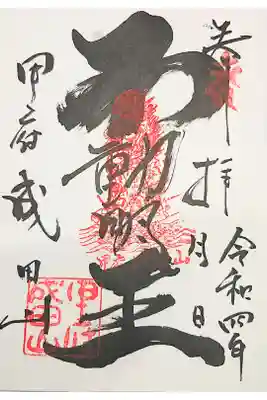 奉拝
令和四年
月日
不動明王
甲府成田山
成田山